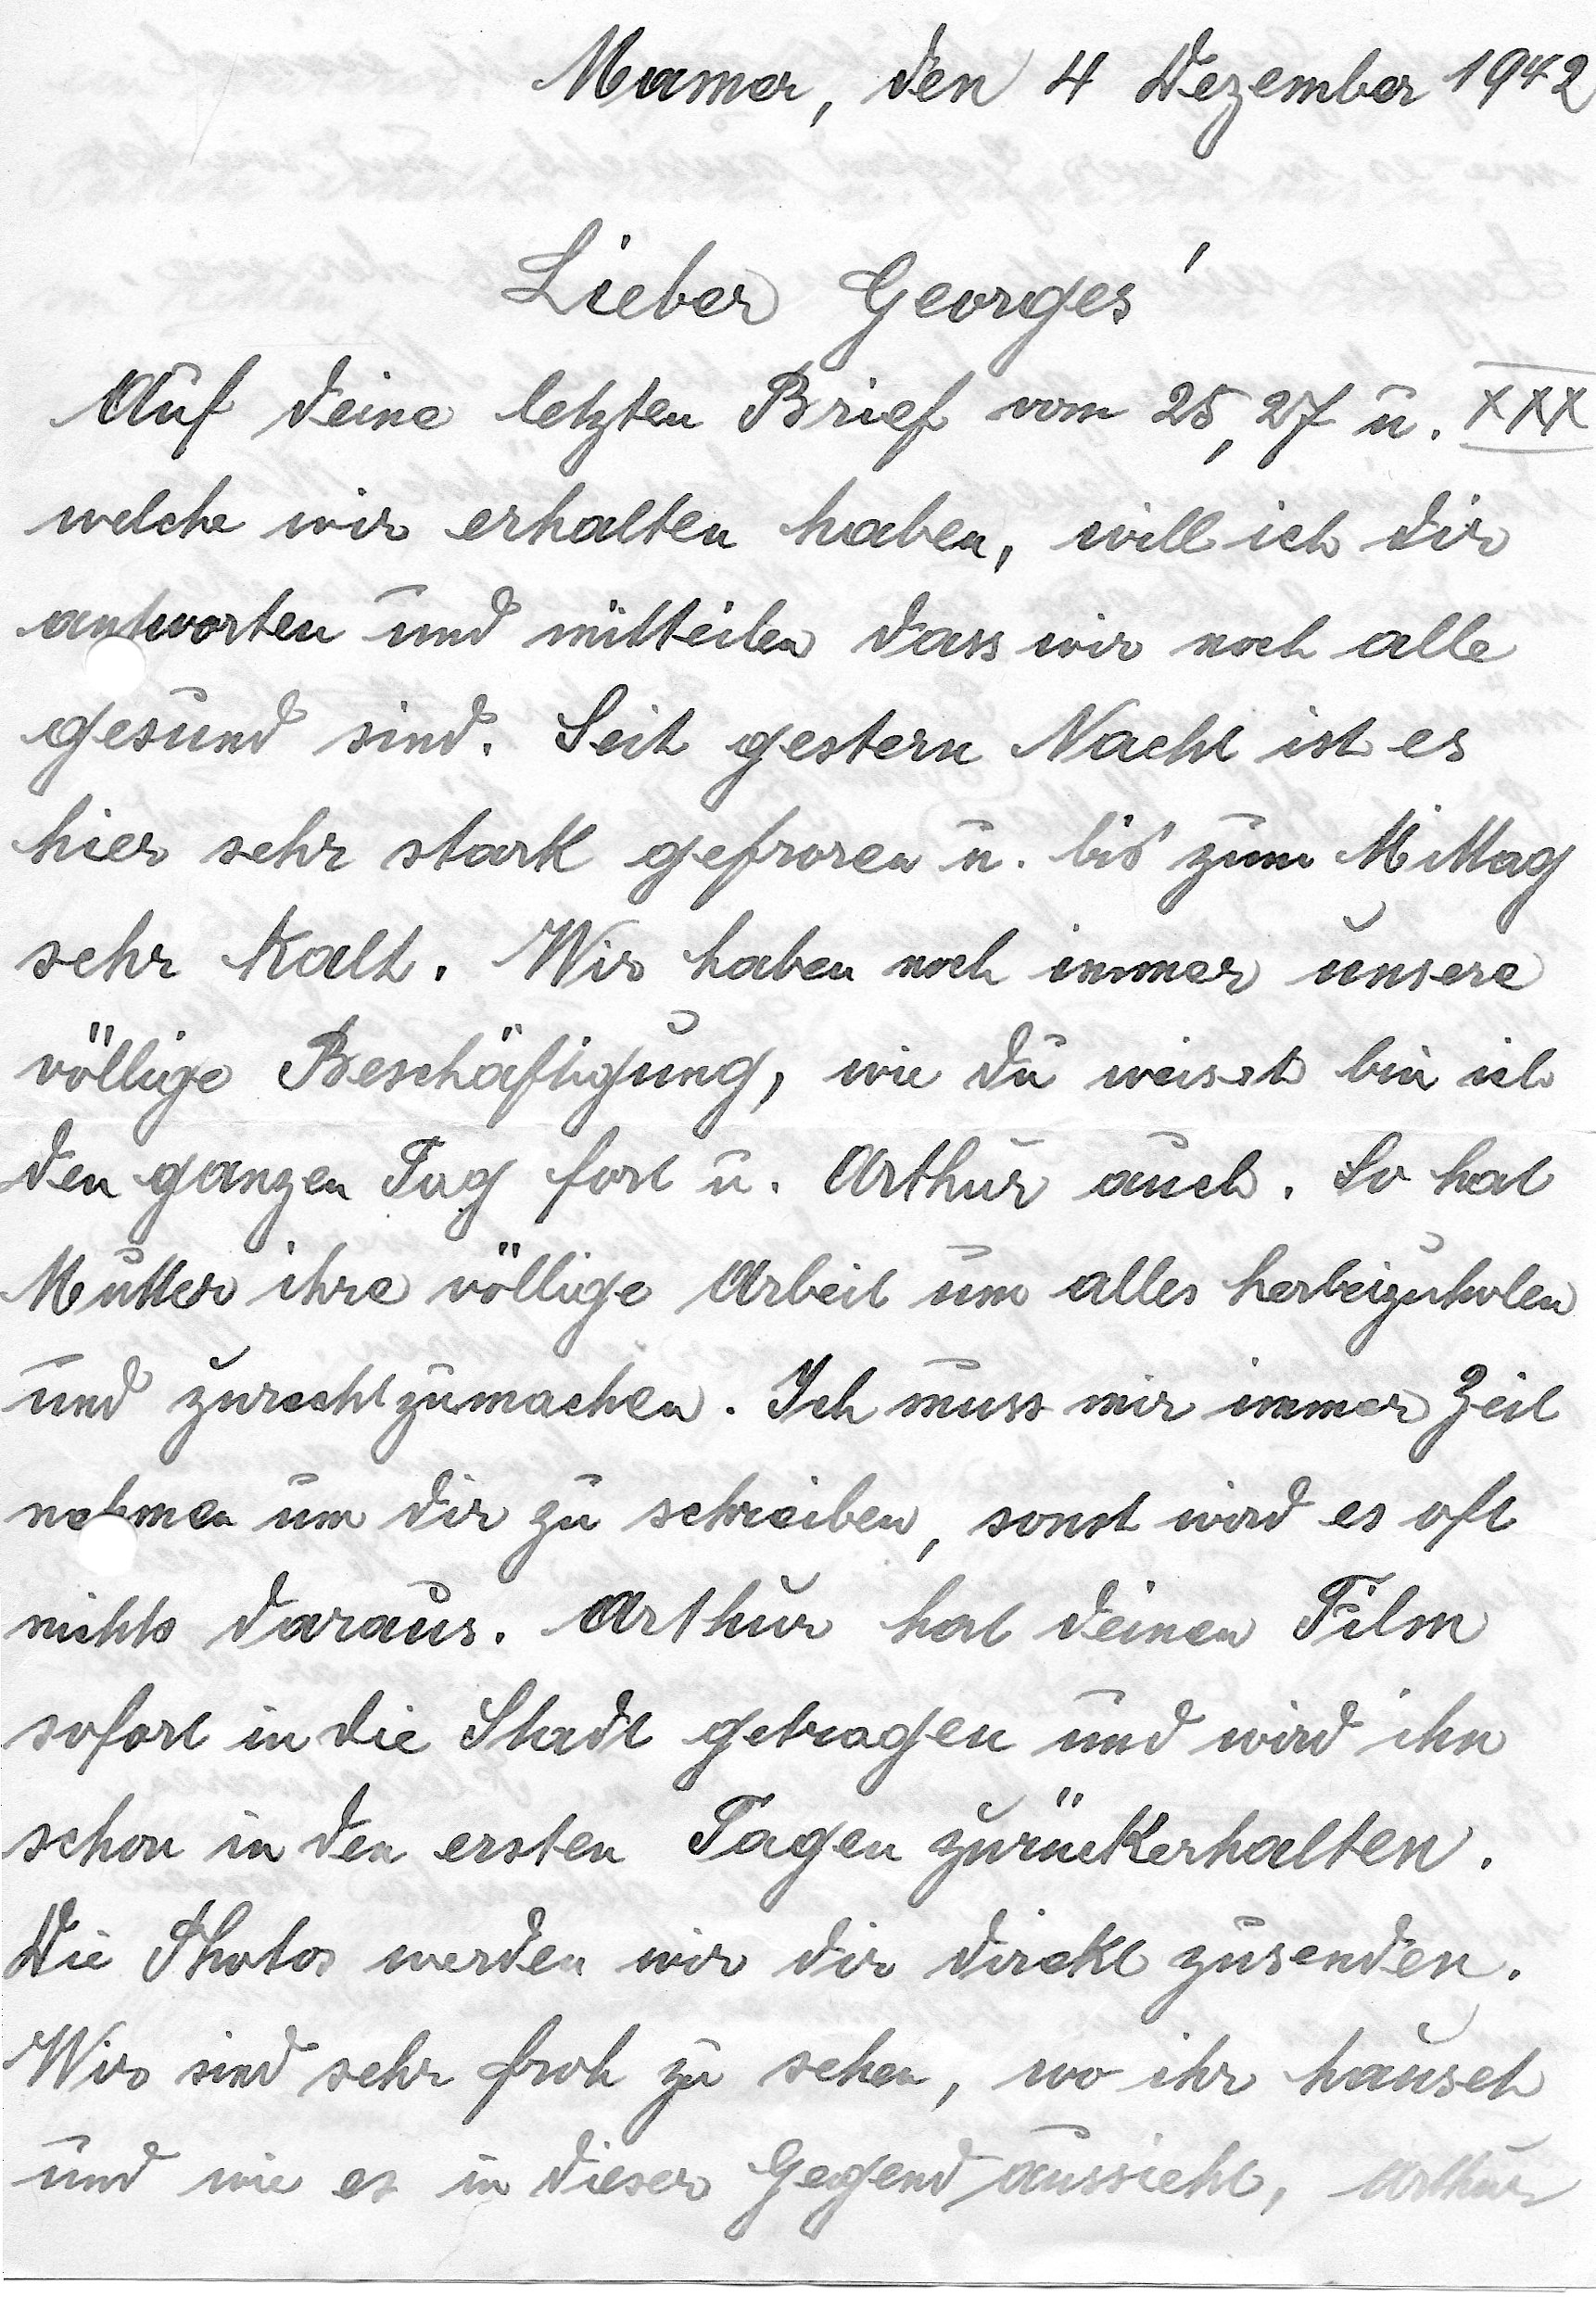 Mamer, den 4 Dezember 1942
Lieber Georges'
Auf deine letzten Brief vom 25, 27 u. XXX
welche wir erhalten haben, will ich dir
antworten und mitteilen dass wir noch alle
gesund sind. Seit gestern Nacht ist es
hier sehr stark gefroren u. bis zum Mittag
sehr kalt. Wir haben noch immer unsere
völlige Beschäftigung, wie du weisst bin ich
den ganzen Tag fort u. Arthur auch. So hat
Mutter ihre völlige Arbeit um alles herbeizuholen
und zurechtzumachen. Ich muss mir immer Zeit
nehmen um dir zu schreiben, sonst wird es oft
nichts daraus. Arthur hat deinen Film
sofort in die Stadt getragen und wird ihn
schon in den ersten Tagen zurückerhalten.
Die Photos werden wir dir direkt zusenden.
Wir sind sehr froh zu sehen, wo ihr hauset
und wie es in dieser Gegend aussieht, Arthur